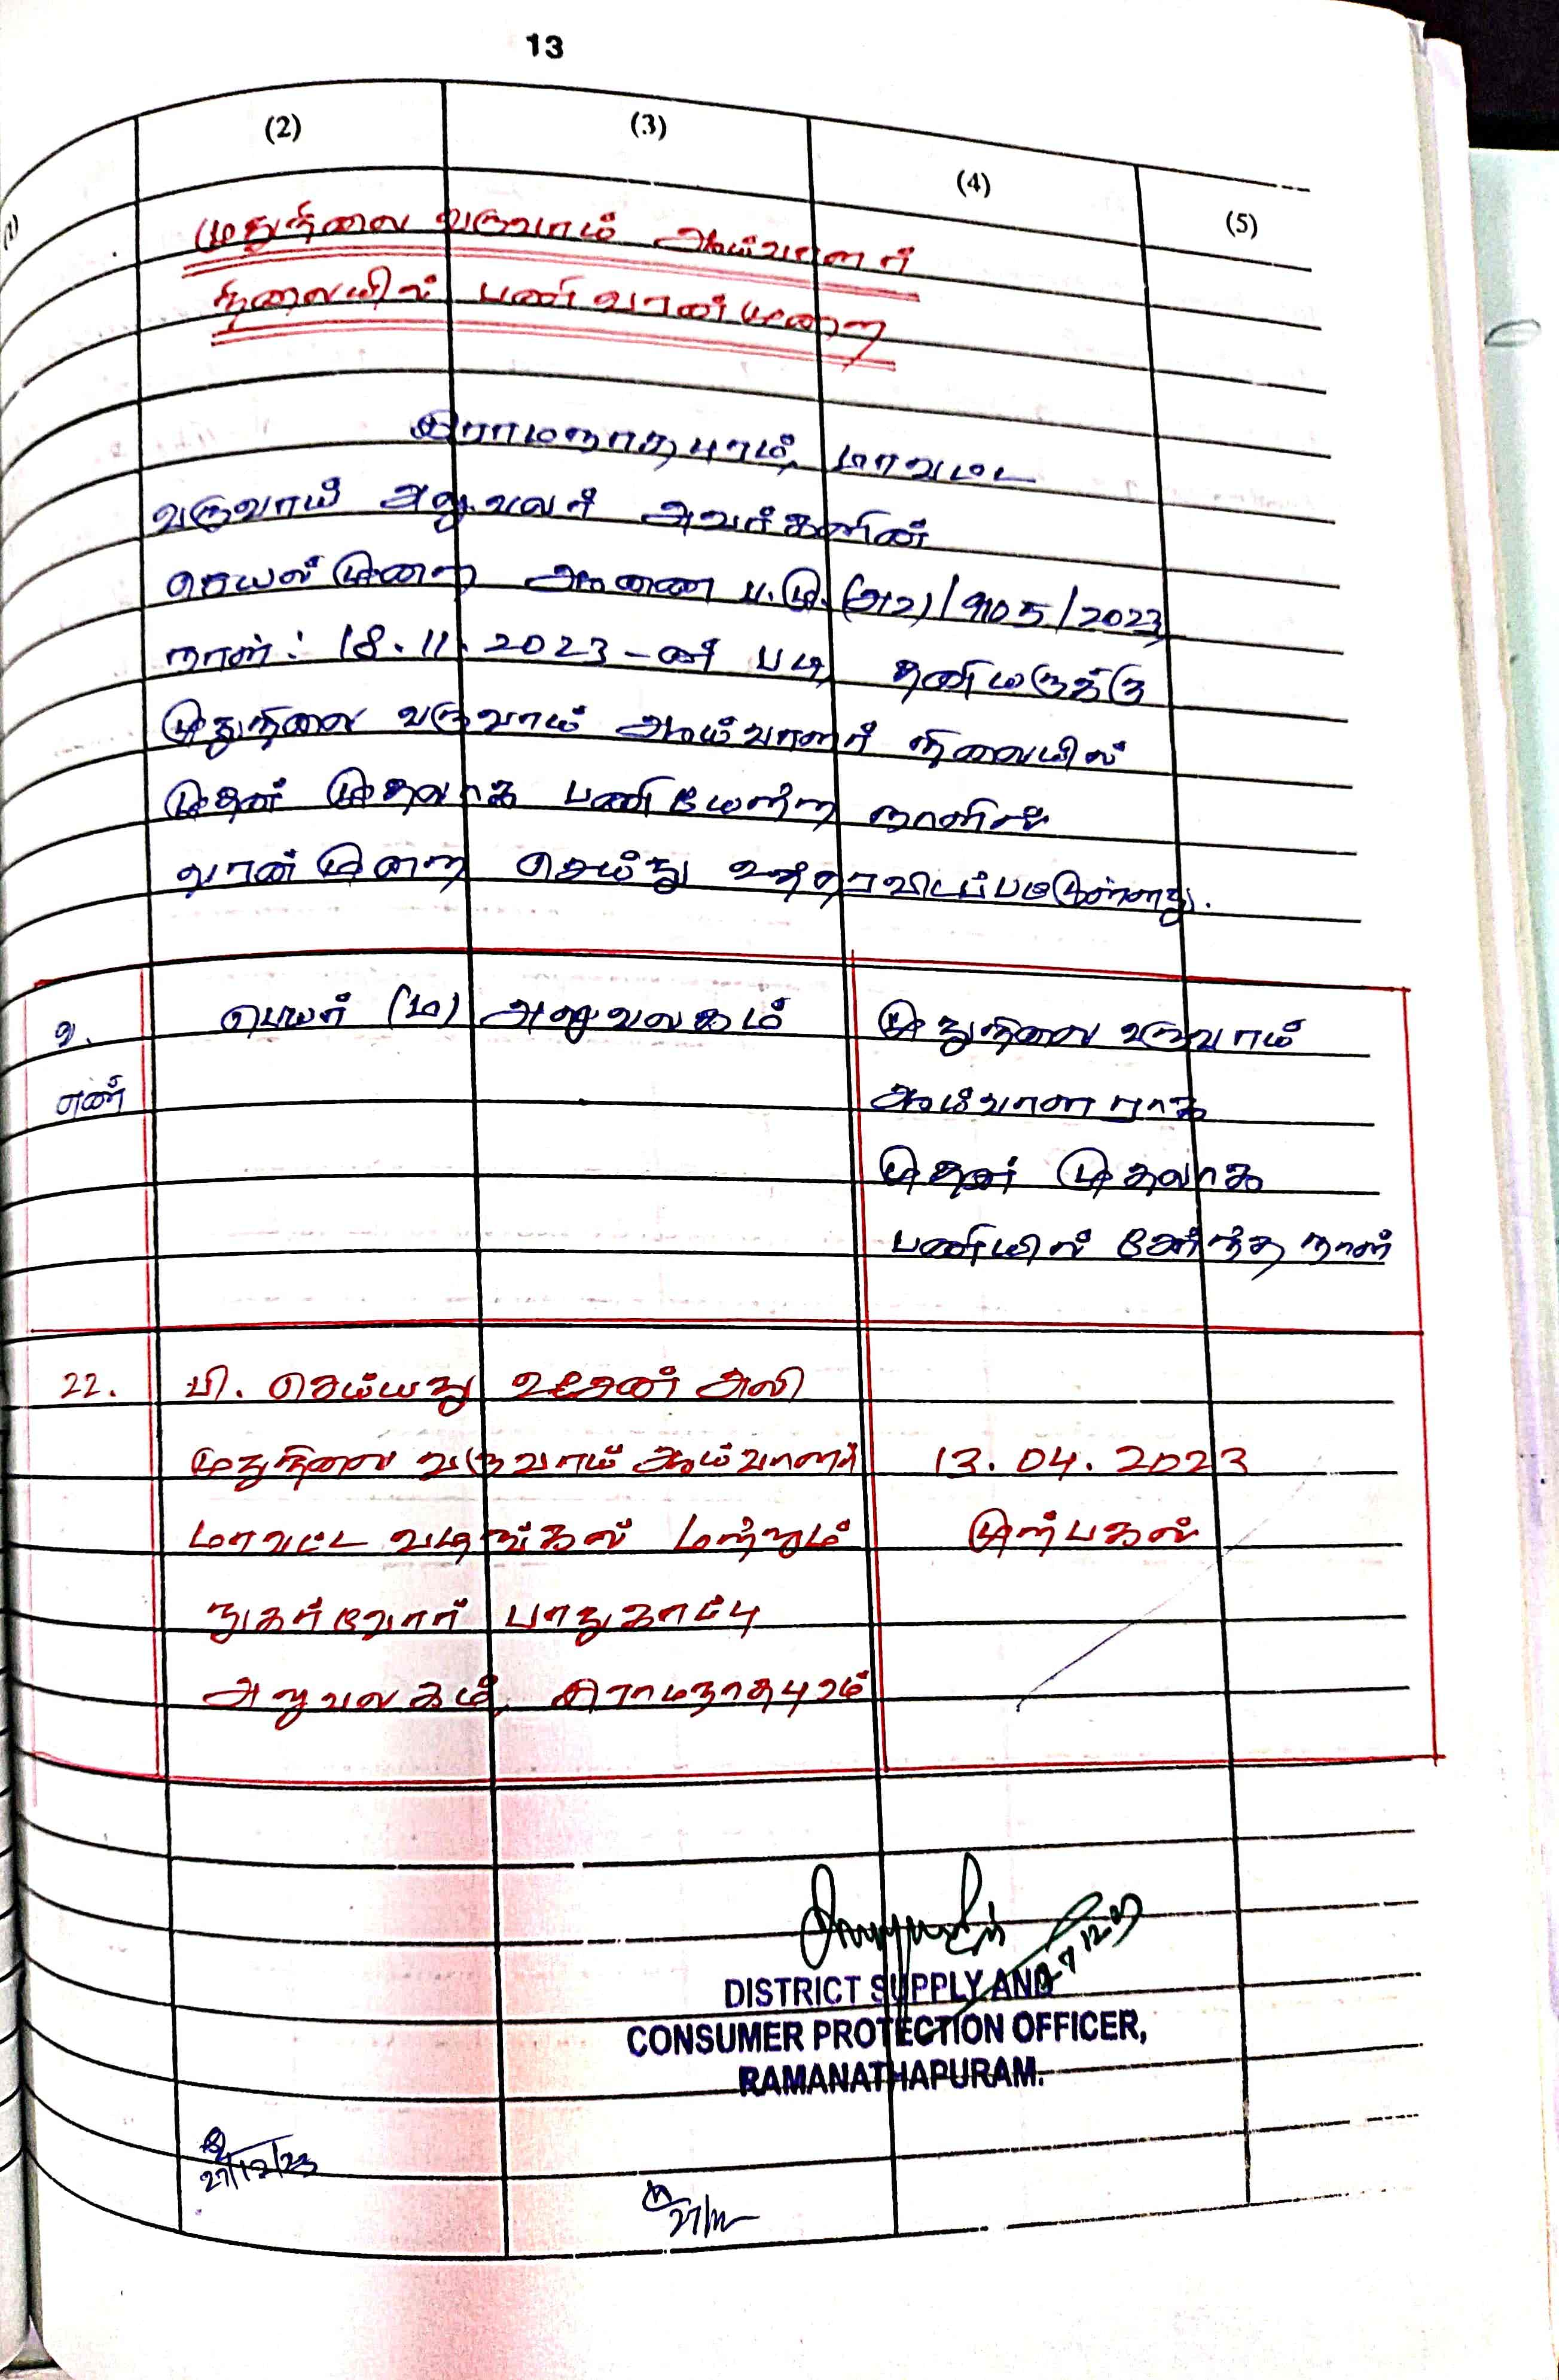 13
(1) (2) (3) (4) (5)
முதுநிலை வருவாய் ஆய்வாளர்
நிலையில் பணி வரன்முறை
இராமநாதபுரம், மாவட்ட
வருவாய் அலுவலர் அவர்களின்
செயல்முறை ஆணை ப.மு.(அ2)/9105/2023
நாள்: 18.11.2023-ன் படி தணிமருக்கு
முதுநிலை வருவாய் ஆய்வாளர் நிலையில்
முதன் முதலாக பணியேற்ற நாளில்
வரன்முறை செய்து உத்தரவிடப்பட்டுள்ளது.
வ. எண்
பெயர் (ம) அலுவலகம்
முதுநிலை வருவாய்
ஆய்வாளராக
முதன் முதலாக
பணியில் சேர்ந்த நாள்
22. பி. செய்யது உசேன் அலி
முதுநிலை வருவாய் ஆய்வாளர் 13.04.2023
மாவட்ட வழங்கல் மற்றும் முற்பகல்
நுகர்வோர் பாதுகாப்பு
அலுவலகம், இராமநாதபுரம்
27.12.23
DISTRICT SUPPLY AND
CONSUMER PROTECTION OFFICER,
RAMANATHAPURAM.
27/12/23
27/12